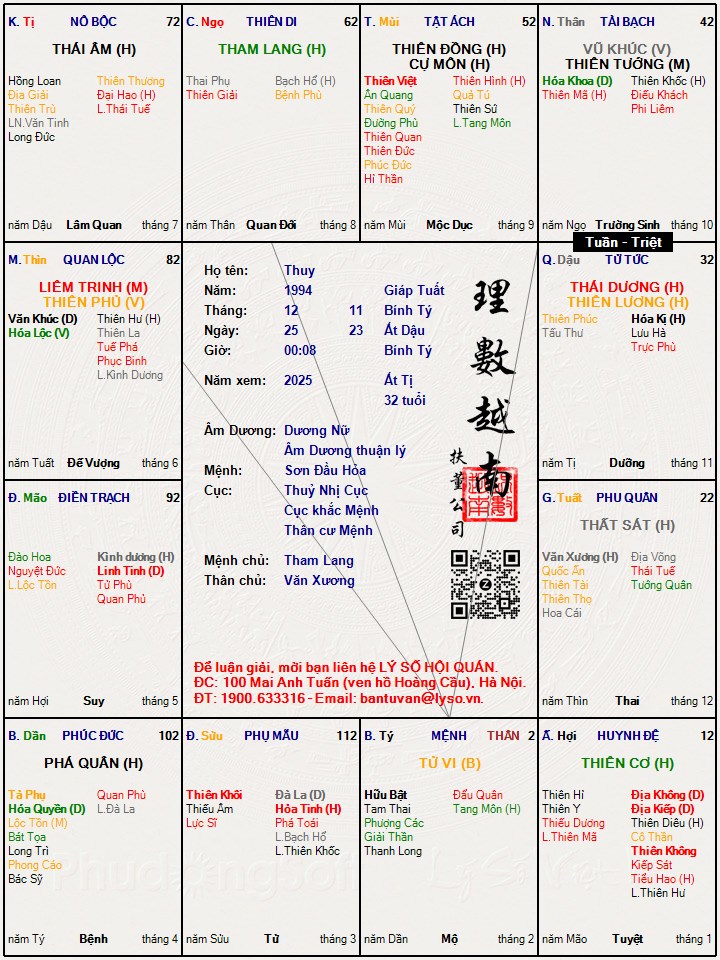 K. Tị NÔ BỘC 72
THÁI ÂM (H)
Hồng Loan Thiên Thương
Địa Giải Đại Hao (H)
Thiên Trù L.Thái Tuế
LN.Văn Tinh
Long Đức
năm Dậu Lâm Quan tháng 7
C. Ngọ THIÊN DI 62
THAM LANG (H)
Thai Phụ Bạch Hổ (H)
Thiên Giải Bệnh Phù
năm Thân Quan Đới tháng 8
T. Mùi TẬT ÁCH 52
THIÊN ĐỒNG (H)
CỰ MÔN (H)
Thiên Việt Thiên Hình (H)
Ân Quang Quả Tú
Thiên Quý Thiên Sứ
Đường Phù L.Tang Môn
Thiên Quan
Thiên Đức
Phúc Đức
Hỉ Thần
năm Mùi Mộc Dục tháng 9
N. Thân TÀI BẠCH 42
VŨ KHÚC (V)
THIÊN TƯỚNG (M)
Hóa Khoa (D) Thiên Khốc (H)
Thiên Mã (H) Điếu Khách
Phi Liêm
năm Ngọ Trường Sinh tháng 10
Tuần - Triệt
M. Thìn QUAN LỘC 82
LIÊM TRINH (M)
THIÊN PHỦ (V)
Văn Khúc (D) Thiên Hư (H)
Hóa Lộc (V) Thiên La
Tuế Phá
Phục Binh
L.Kình Dương
năm Tuất Đế Vượng tháng 6
Họ tên: Thuy
Năm: 1994 Giáp Tuất
Tháng: 12 11 Bính Tý
Ngày: 25 23 Ất Dậu
Giờ: 00:08 Bính Tý
Năm xem: 2025 Ất Tị
32 tuổi
Âm Dương: Dương Nữ
Âm Dương thuận lý
Mệnh: Sơn Đầu Hỏa
Cục: Thuỷ Nhị Cục
Cục khắc Mệnh
Thân cư Mệnh
Mệnh chủ: Tham Lang
Thân chủ: Văn Xương
理數越南
扶董公司
Z
Để luận giải, mời bạn liên hệ LÝ SỐ HỘI QUÁN.
ĐC: 100 Mai Anh Tuấn (ven hồ Hoàng Cầu), Hà Nội.
ĐT: 1900.633316 - Email: bantuvan@lyso.vn.
Q. Dậu TỬ TỨC 32
THÁI DƯƠNG (H)
THIÊN LƯƠNG (H)
Thiên Phúc Hóa Kị (H)
Tấu Thư Lưu Hà
Trực Phù
năm Tị Dưỡng tháng 11
Đ. Mão ĐIỀN TRẠCH 92
Đào Hoa Kình dương (H)
Nguyệt Đức Linh Tinh (D)
L.Lộc Tồn Tử Phù
Quan Phủ
năm Hợi Suy tháng 5
G. Tuất PHU QUÂN 22
THẤT SÁT (H)
Văn Xương (H) Địa Võng
Quốc Ấn Thái Tuế
Thiên Tài Tướng Quân
Thiên Thọ
Hoa Cái
năm Thìn Thai tháng 12
B. Dần PHÚC ĐỨC 102
PHÁ QUÂN (H)
Tả Phụ Quan Phù
Hóa Quyền (D) L.Đà La
Lộc Tồn (M)
Bát Tọa
Long Trì
Phong Cáo
Bác Sỹ
năm Tý Bệnh tháng 4
Đ. Sửu PHỤ MẪU 112
Thiên Khôi Đà La (D)
Thiếu Âm Hỏa Tinh (H)
Lực Sĩ Phá Toái
L.Bạch Hổ
L.Thiên Khốc
năm Sửu Tử tháng 3
B. Tý MỆNH THÂN 2
TỬ VI (B)
Hữu Bật Đẩu Quân
Tam Thai Tang Môn (H)
Phượng Các
Giải Thần
Thanh Long
năm Dần Mộ tháng 2
Ấ. Hợi HUYNH ĐỆ 12
THIÊN CƠ (H)
Thiên Hỉ Địa Không (D)
Thiên Y Địa Kiếp (D)
Thiếu Dương Thiên Diêu (H)
L.Thiên Mã Cô Thần
Thiên Không
Kiếp Sát
Tiểu Hao (H)
L.Thiên Hư
năm Mão Tuyệt tháng 1